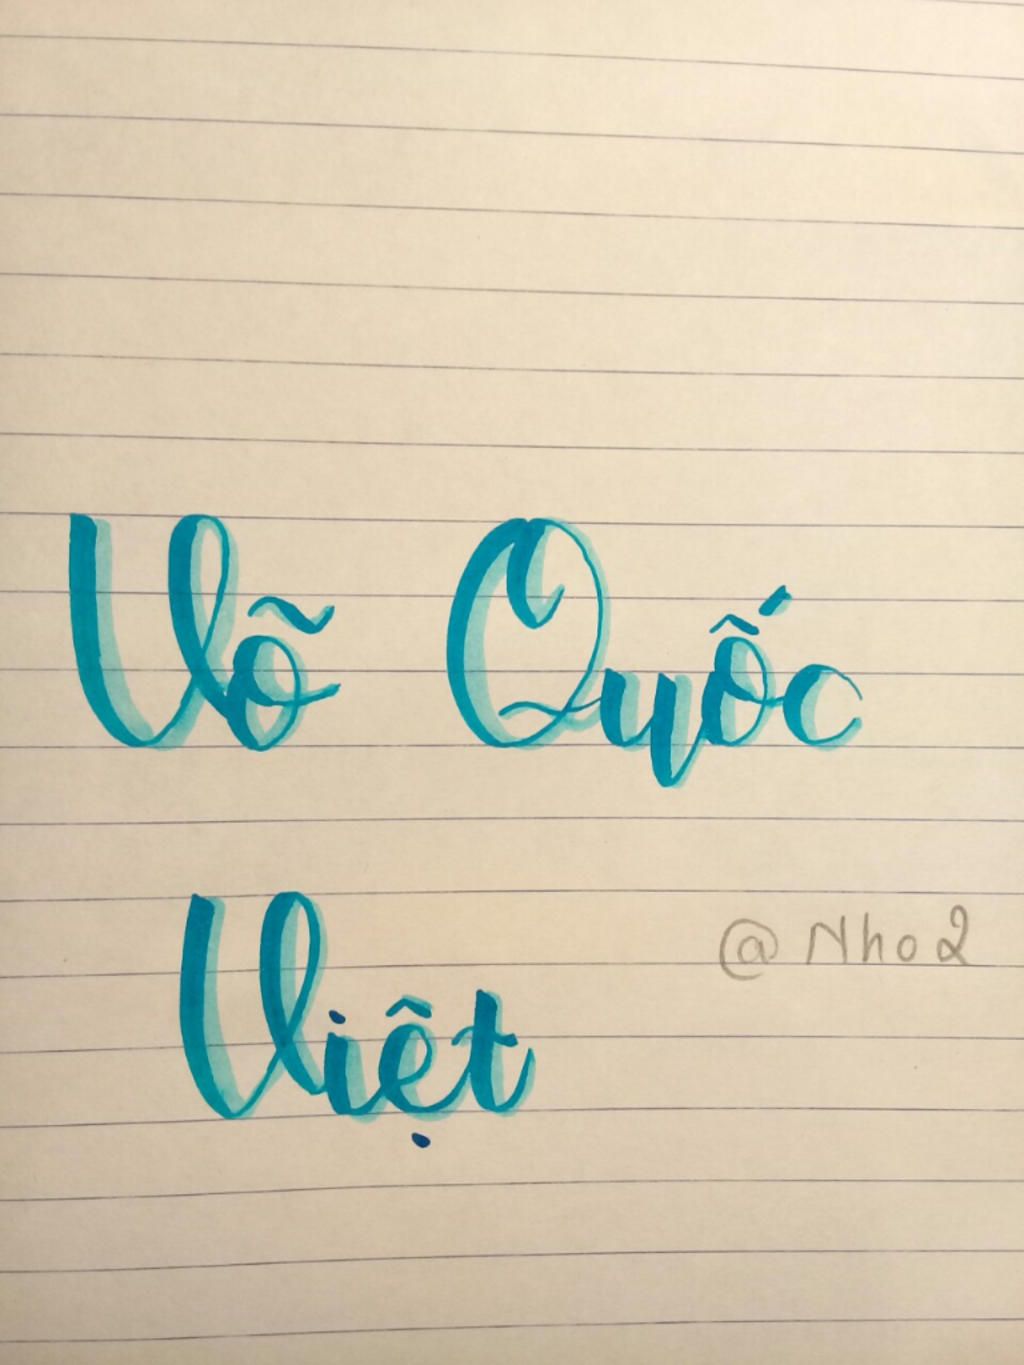 Võ Quốc
@Nho2
Việt